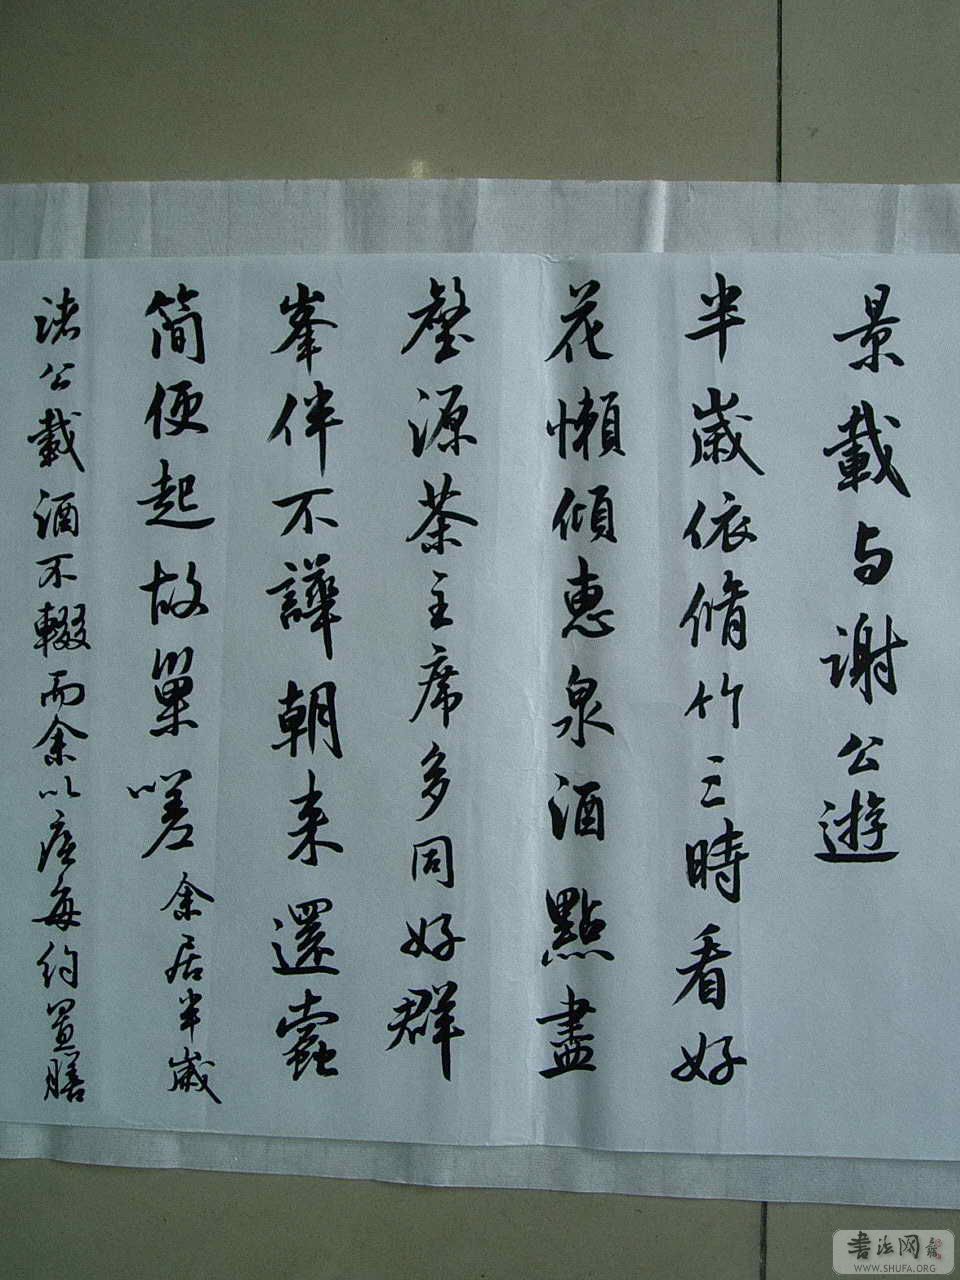 景載与謝公遊
半歲依脩竹三時看好
花懶傾惠泉酒點盡
壑源茶主席多同好群
峯伴不譁朝来還蠹
简便起故巢嗟 余居半歲
诸公載酒不輟而余以疾每约置膳
書法网
WWW.SHUFA.ORG